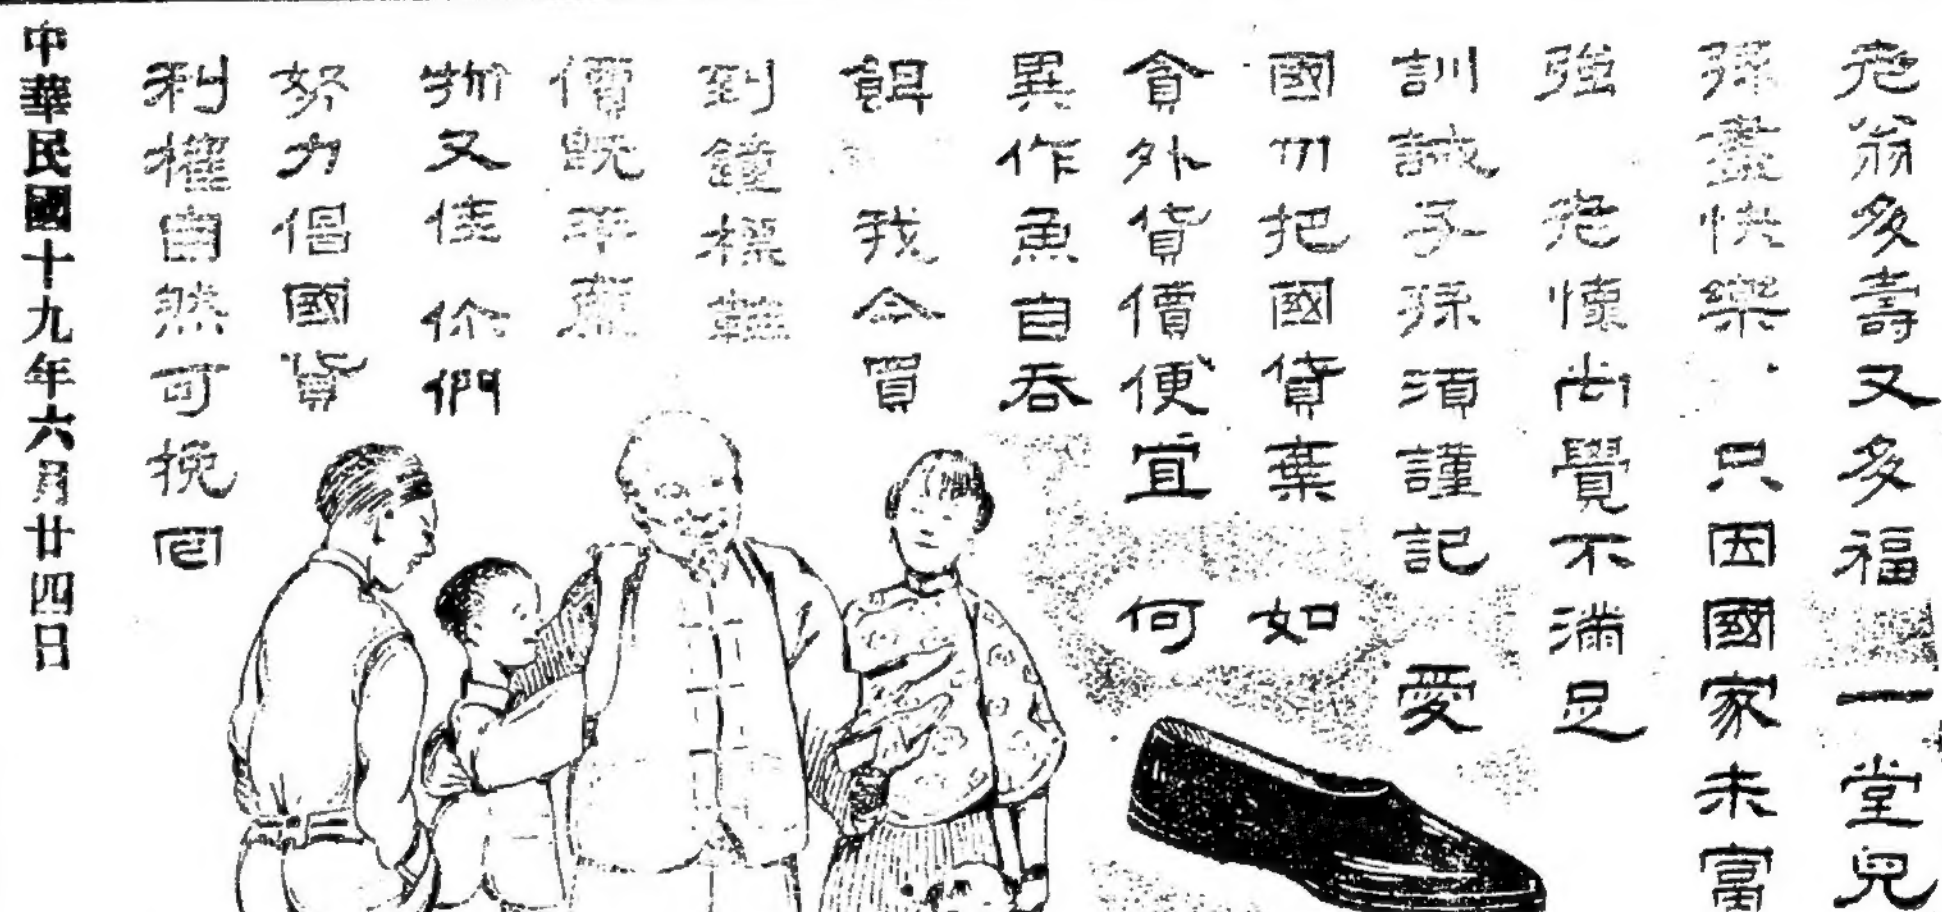 老翁多壽又多福一堂兒
孫盡快樂．只因國家未富
強 老懷尚覺不滿足
訓誡子孫須謹記 愛
國勿把國貨棄 如
貪外貨價便宜 何
異作魚自吞
餌 我今買
到鐘標鞋
價既平廉
物又佳 你們
努力倡國貨
利權自然可挽回
中華民國十九年六月廿四日